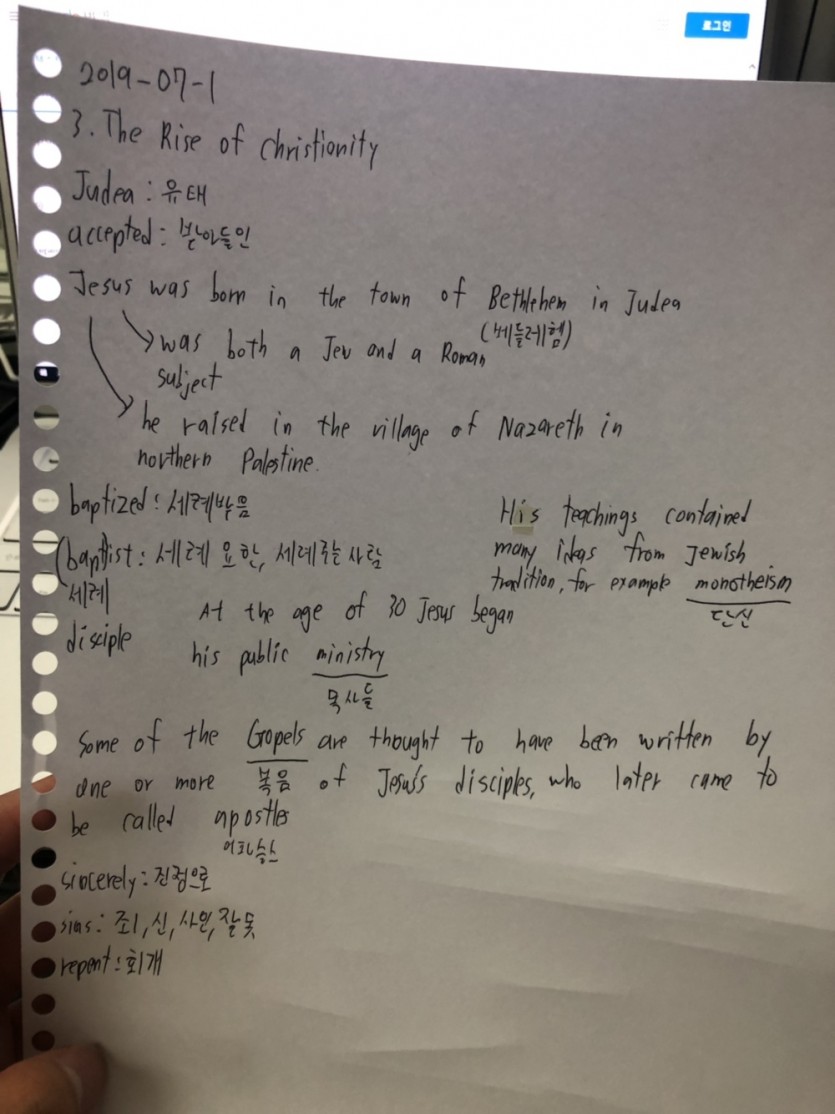 로그인
2019-07-1
3. The Rise of Christionity
Judea : 유태
accepted : 받아들인
Jesus was born in the town of Bethlehem in Judea
(베들레헴)
was both a Jew and a Roman
subject
he raised in the village of Nazareth in
northern Palestine.
baptized : 세례받음
baptist : 세례 요한, 세례주는 사람
세례
disciple
His teachings contained
many ideas from Jewish
tradition, for example monotheism
At the age of 30 Jesus began
his public ministry
목사들
Some of the Gopels are thought to have been written by
one or more 복음 of Jesus's disciples, who later came to
be called apostles
sincerely : 진정으로
sins : 죄, 신, 사인, 잘못
repent : 회개